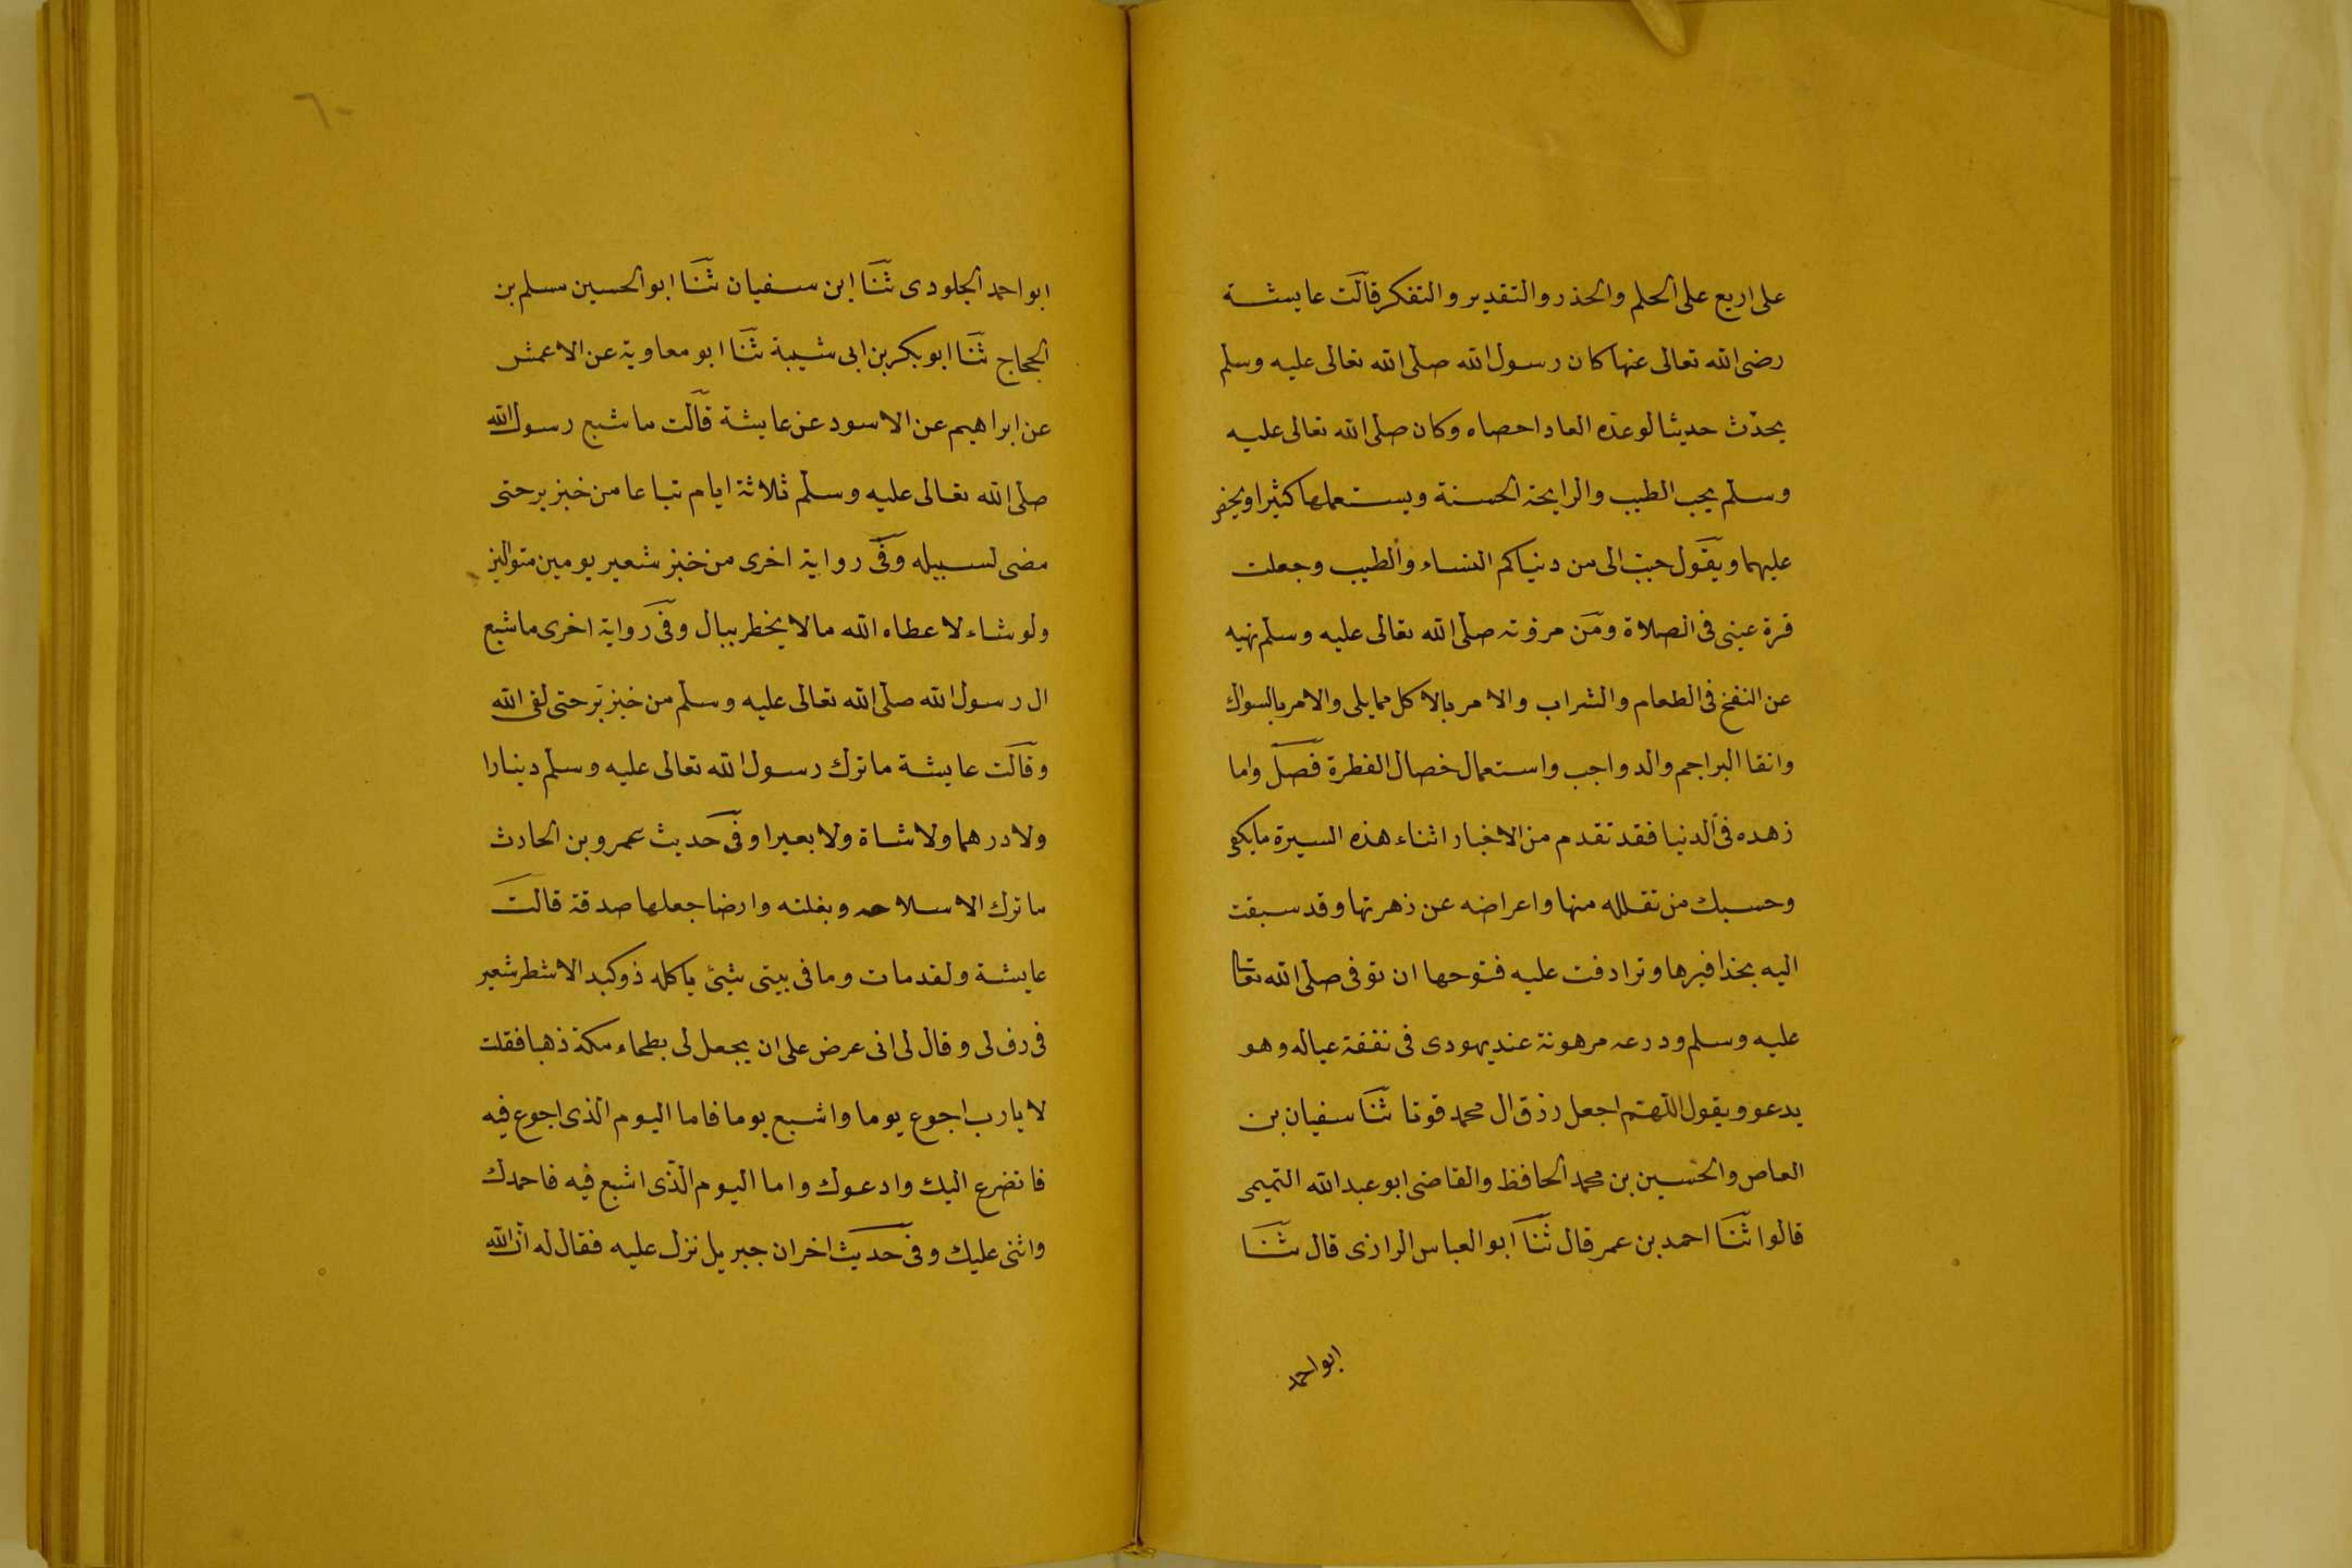 على اربع على الحلم والحذر والتقدير والتفكر قالت عايشة
رضى الله تعالى عنها كان رسول الله صلى الله تعالى عليه وسلم
يحدّث حديثا لو عدّه العاد احصاه وكان صلى الله تعالى عليه
وسلم يحب الطيب والرايحة الحسنة ويستعملها كثيرا ويحض
عليهما ويقول حبب الى من دنياكم النساء والطيب وجعلت
قرة عينى فى الصلاة ومن مروّته صلى الله تعالى عليه وسلم نهيه
عن النفخ فى الطعام والشراب والامر بالاكل مما يلى والامر بالسواك
وانقا البراجم والدواجب واستعمال خصال الفطرة فصل واما
زهده فى الدنيا فقد تقدم من الاخبار اثناء هذه السيرة ما يكفى
وحسبك من تقلله منها واعراضه عن زهرتها وقد سبقت
اليه بحذافيرها وترادفت عليه فتوحها ان توفى صلى الله تعا
عليه وسلم ودرعه مرهونة عند يهودى فى نفقة عياله وهو
يدعو ويقول اللهم اجعل رزق ال محمد قوتا ثنا سفيان بن
العاص والحسين بن محمد الحافظ والقاضى ابو عبد الله التميمى
قالوا ثنا احمد بن عمر قال ثنا ابو العباس الرازى قال ثنا
ابو احمد
٦٠
ابو احمد الجلودى ثنا ابن سفيان ثنا ابو الحسين مسلم بن
الحجاج ثنا ابو بكر بن ابى شيبة ثنا ابو معاوية عن الاعمش
عن ابراهيم عن الاسود عن عايشة قالت ما شبع رسول الله
صلى الله تعالى عليه وسلم ثلاثة ايام تباعا من خبز بر حتى
مضى لسبيله وفى رواية اخرى من خبز شعير يومين متوالين
ولو شاء لاعطاه الله ما لا يخطر ببال وفى رواية اخرى ما شبع
ال رسول الله صلى الله تعالى عليه وسلم من خبز برّ حتى لقى الله
وقالت عايشة ما ترك رسول الله تعالى عليه وسلم دينارا
ولا درهما ولا شاة ولا بعيرا وفى حديث عمرو بن الحارث
ما ترك الا سلاحه وبغلته وارضا جعلها صدقة قالت
عايشة ولقد مات وما فى بيتى شئ ياكله ذو كبد الا شطر شعير
فى رف لى وقال لى انى عرض على ان يجعل لى بطحاء مكة ذهبا فقلت
لا يا رب اجوع يوما واشبع يوما فاما اليوم الذى اجوع فيه
فاتضرع اليك وادعوك واما اليوم الذى اشبع فيه فاحمدك
واثنى عليك وفى حديث اخر ان جبريل نزل عليه فقال له ان الله